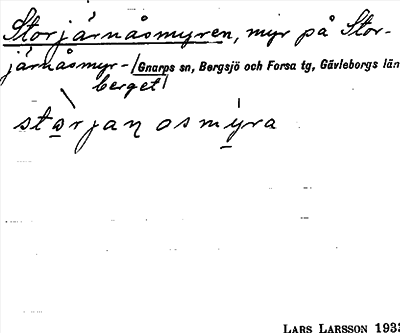 Storjärnåsmyren, myr på Stor-
järnåsmyr-
Gnarps sn, Bergsjö och Forsa tg, Gävleborgs län
berget
starjan osmyra
LARS LARSSON 1933